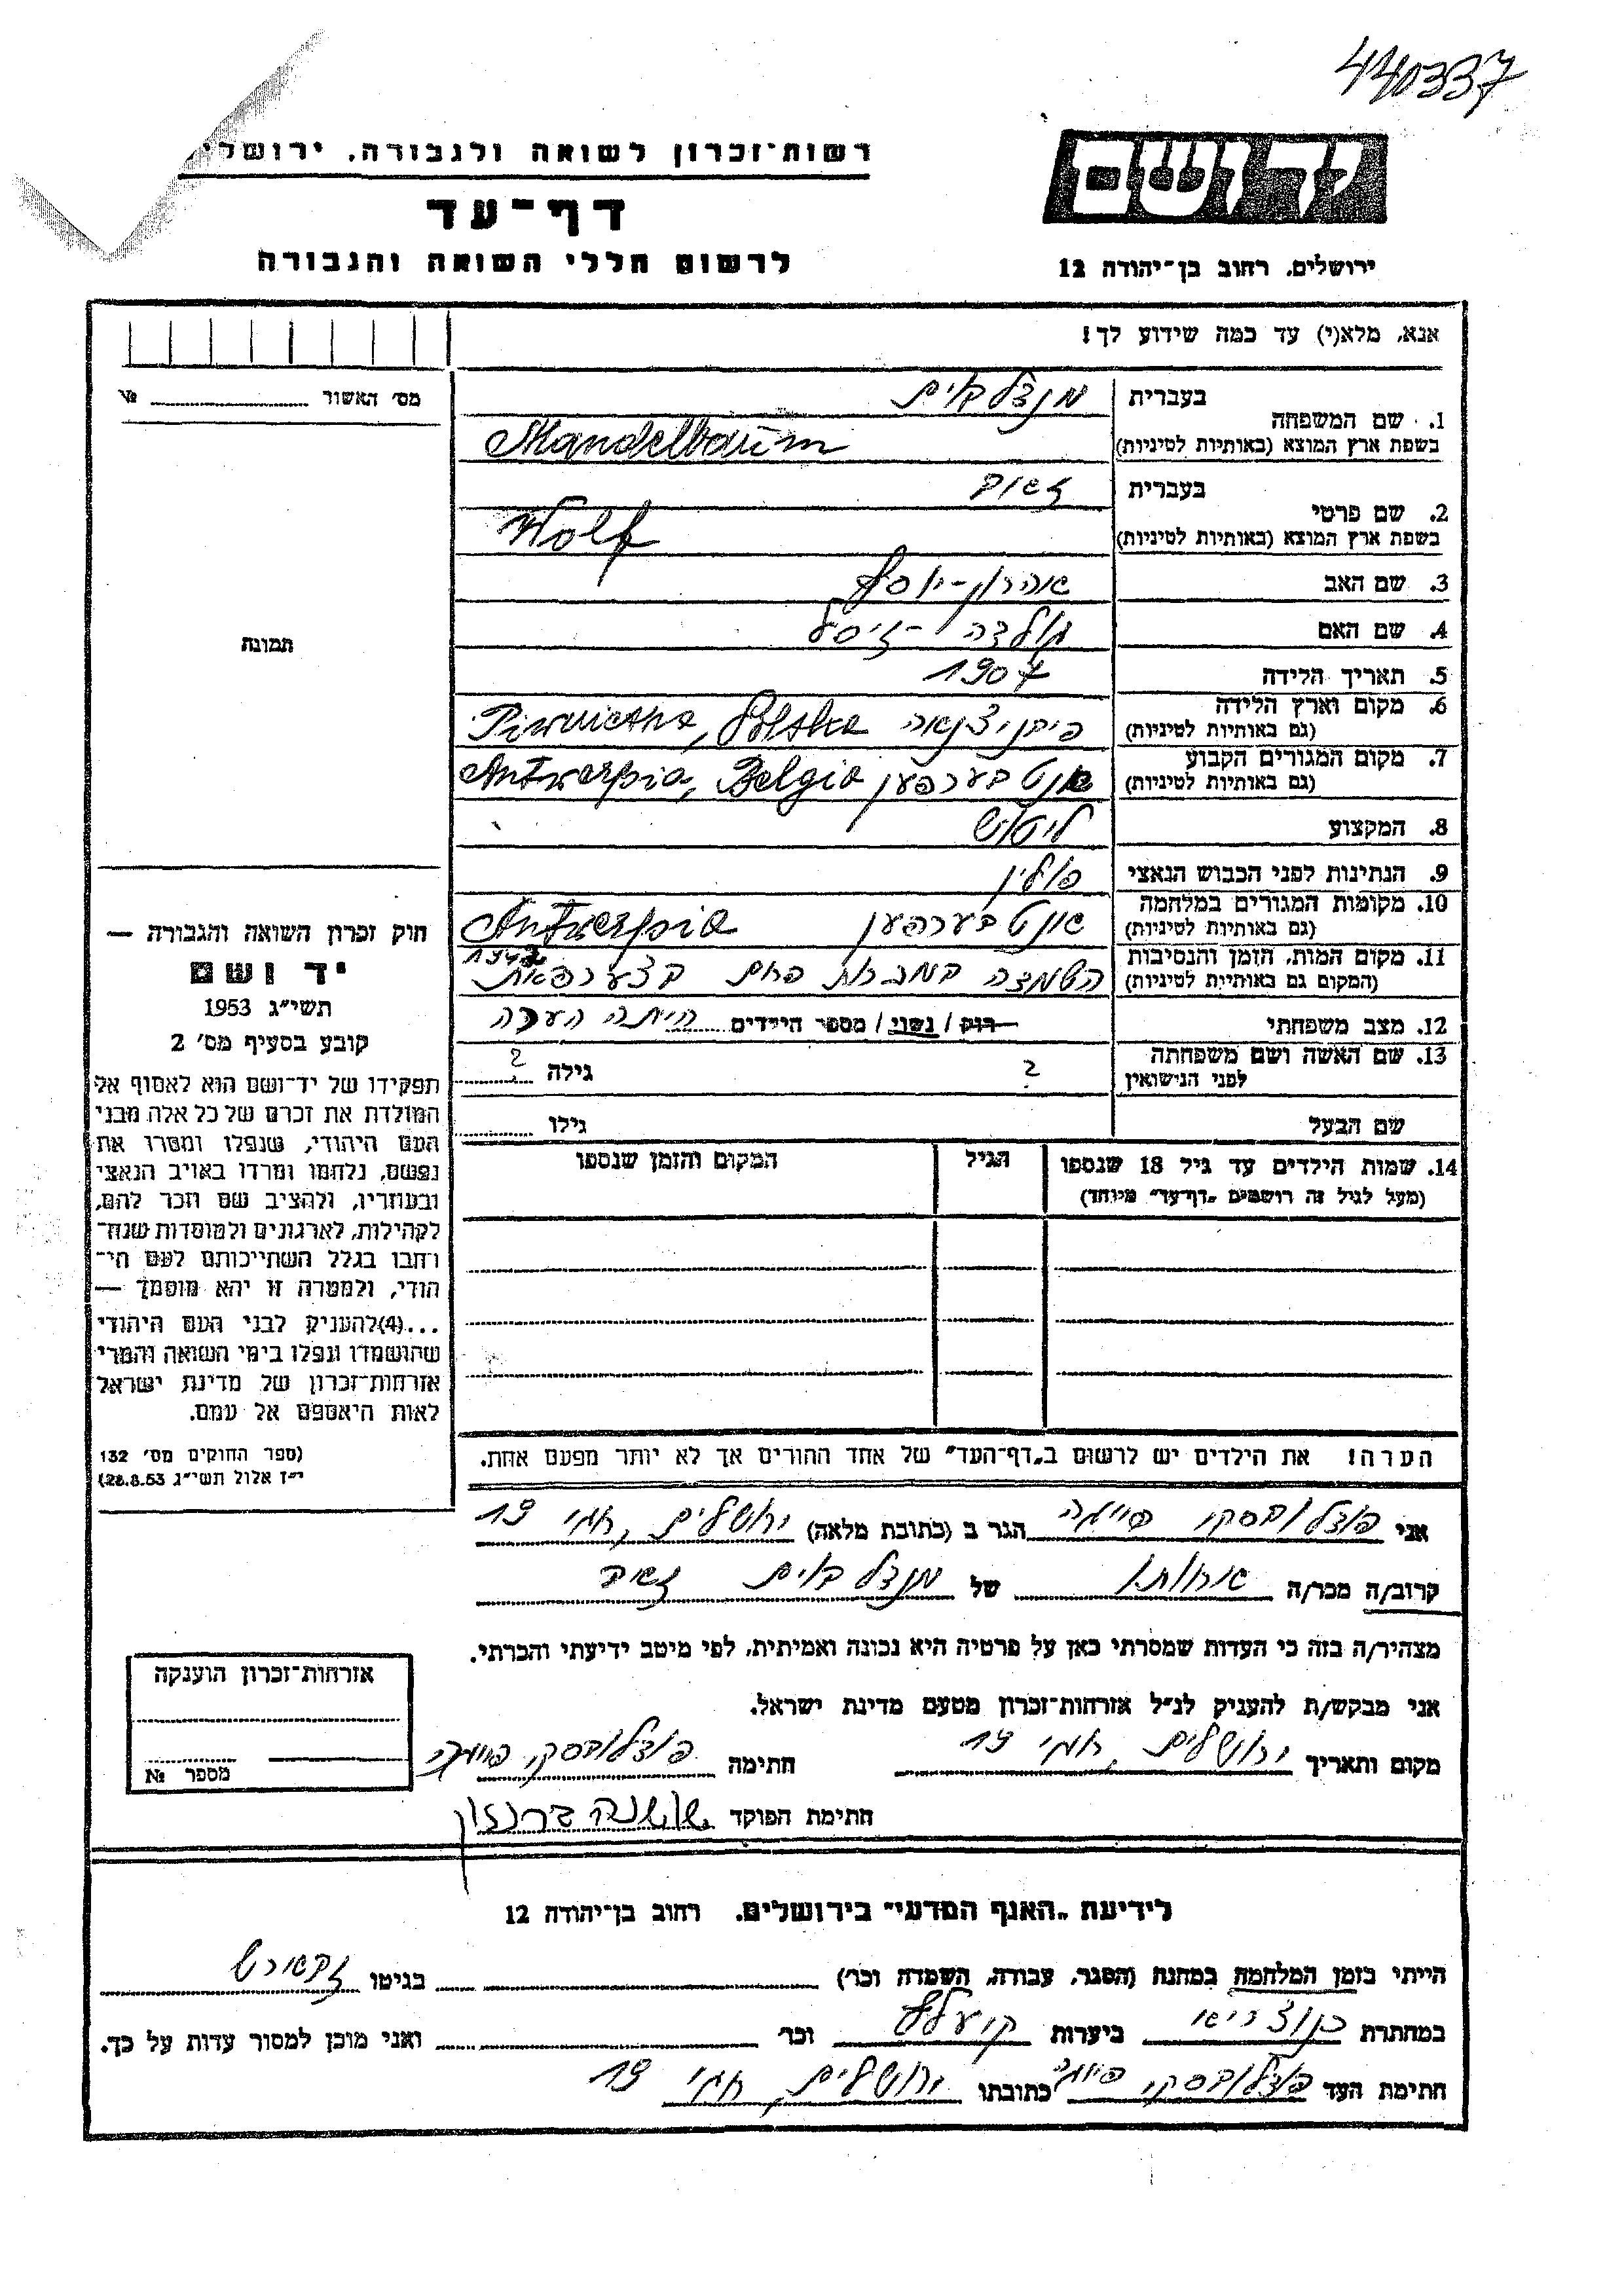 440337
יד ושם
ירושלים, רחוב בן־יהודה 12
רשות־זכרון לשואה ולגבורה, ירושלי
דף־עד
לרשום חללי השואה והגבורה
אנא, מלא(י) עד כמה שידוע לך!
מס׳ האשור №
1. שם המשפחה
בעברית מנדלבוים
בשפת ארץ המוצא (באותיות לטיניות) Mandelbaum
2. שם פרטי
בעברית זאוב
בשפת ארץ המוצא (באותיות לטיניות) Wolf
3. שם האב אהרון-יוסף
4. שם האם גולדה - זיסל
5. תאריך הלידה 1907
6. מקום וארץ הלידה
(גם באותיות לטיניות) Polska
7. מקום המגורים הקבוע
(גם באותיות לטיניות) אנטבערפען Antwerpia, Belgia
8. המקצוע ליטוש
9. הנתינות לפני הכבוש הנאצי פולין
10. מקומות המגורים במלחמה
(גם באותיות לטיניות) אנטבערפען Antwerpia
11. מקום המות, הזמן והנסיבות
(המקום גם באותיות לטיניות) השמדה
12. מצב משפחתי רוק / נשוי / מספר הילדים
13. שם האשה ושם משפחתה
לפני הנישואין ? גילה ?
שם הבעל גילו
14. שמות הילדים עד גיל 18 שנספו
(מעל לגיל זה רושמים „דף־עד״ מיוחד)
הגיל
המקום והזמן שנספו
הערה! את הילדים יש לרשום ב„דף־העד״ של אחד ההורים אך לא יותר מפעם אחת.
תמונה
חוק זכרון השואה והגבורה —
יד ושם
תשי״ג 1953
קובע בסעיף מס׳ 2
תפקידו של יד־ושם הוא לאסוף אל
המולדת את זכרם של כל אלה מבני
העם היהודי, שנפלו ומסרו את
נפשם, נלחמו ומרדו באויב הנאצי
ובעוזריו, ולהציב שם וזכר להם,
לקהילות, לארגונים ולמוסדות שנח־
רבו בגלל השתייכותם לעם הי־
הודי, ולמטרה זו יהא מוסמך —
...(4)להעניק לבני העם היהודי
שהושמדו ונפלו בימי השואה והמרי
אזרחות־זכרון של מדינת ישראל
לאות היאספם אל עמם.
(ספר החוקים מס׳ 132
י״ז אלול תשי״ג 28.8.53)
אני הגר ב (כתובת מלאה) ירושלים, 19
קרוב/ה מכר/ה אחותו של מנדלבוים זאיב
מצהיר/ה בזה כי העדות שמסרתי כאן על פרטיה היא נכונה ואמיתית, לפי מיטב ידיעתי והכרתי.
אני מבקש/ת להעניק לנ״ל אזרחות־זכרון מטעם מדינת ישראל.
מקום ותאריך ירושלים, 19 חתימה
חתימת הפוקד שושנה
אזרחות־זכרון הוענקה
מספר №
לידיעת „האגף המדעי״ בירושלים, רחוב בן־יהודה 12
הייתי בזמן המלחמה במחנה (הסגר, עבודה, השמדה וכר׳) בגיטו
במחתרת ביערות וכר ואני מוכן למסור עדות על כך.
חתימת העד כתובתו ירושלים, 19